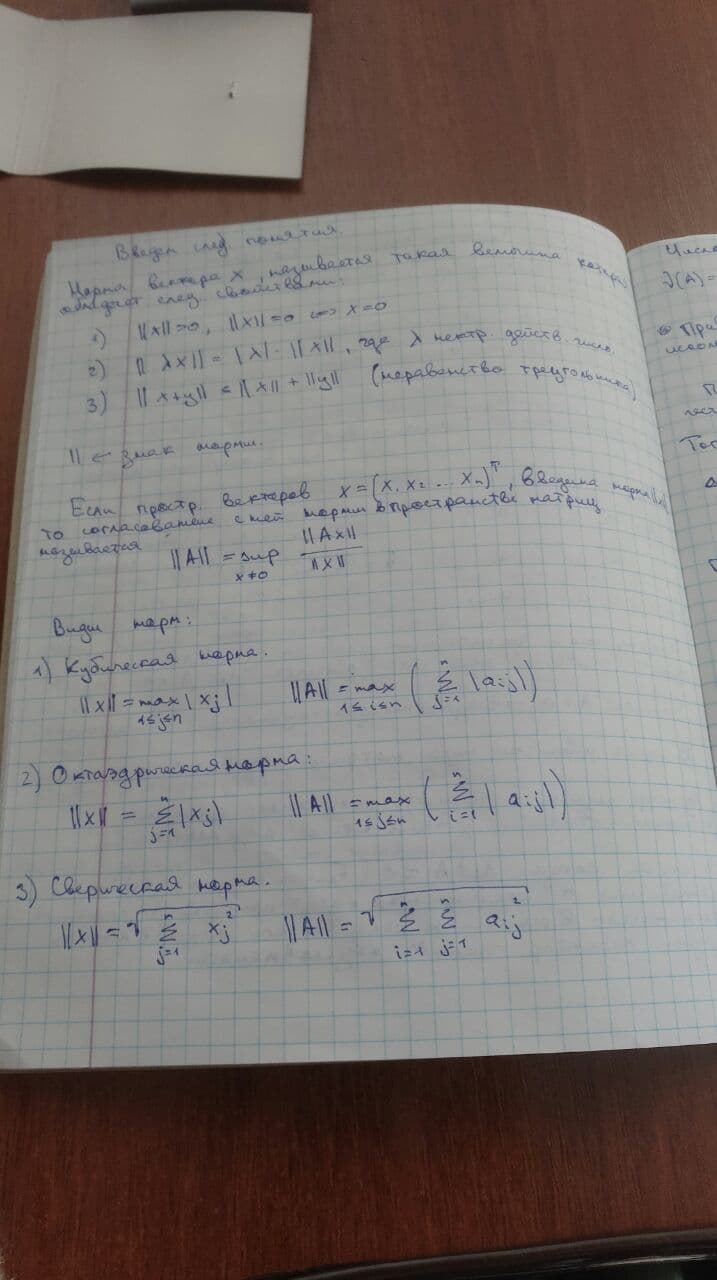 Введем след. понятия.
Норма вектора X, называется такая величина которая
обладает след. свойствами:
1) ||x||>0, ||x||=0 <=> x=0
2) || λx|| = |λ| · ||x||, где λ нектр. действ. число.
3) || x+y|| ≤ || x|| + ||y|| (неравенство треугольника)
|| ← знак нормы.
Если простр. векторов X = (x₁ x₂ ... xₙ)ᵀ, введена норма ||x||
то согласование с ней нормы в пространстве матриц
называется ||A|| = sup x≠0 ||Ax|| / ||x||
Виды норм:
1) Кубическая норма.
||x|| = max 1≤j≤n |xj| ||A|| = max 1≤i≤n ( Σ j=1 n |aij| )
2) Октаэдрическая норма:
||x|| = Σ j=1 n |xj| ||A|| = max 1≤j≤n ( Σ i=1 n | aij| )
3) Сверическая норма.
||x|| = √ Σ j=1 n xj² ||A|| = √ Σ i=1 n Σ j=1 n aij²
Число
ν(A) =